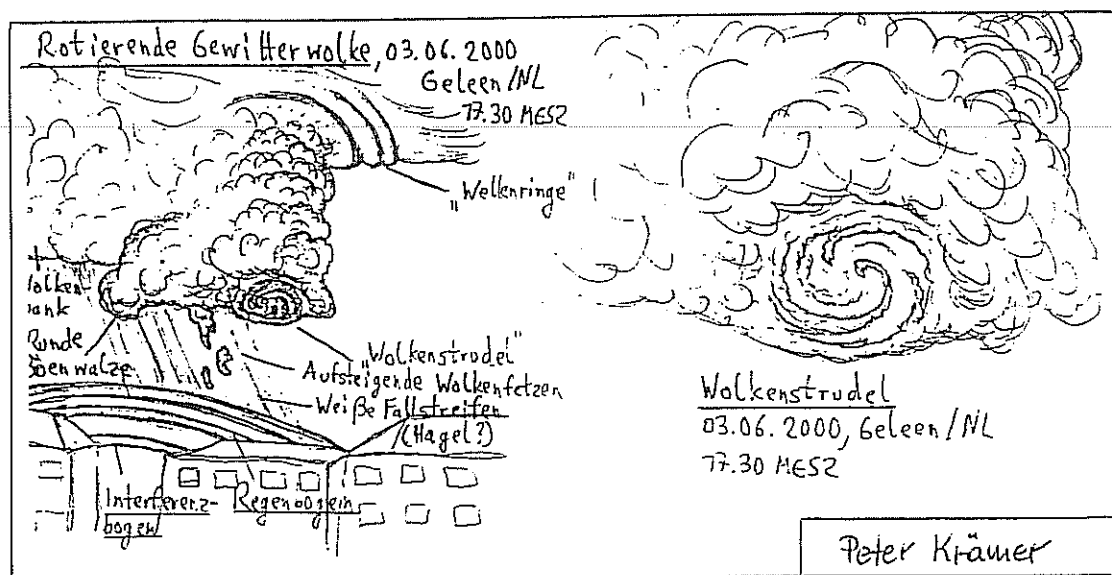 Rotierende Gewitterwolke, 03.06.2000
Geleen/NL
17.30 MESZ
"Wellenringe"
Runde
Böenwalze
"Wolkenstrudel"
Aufsteigende Wolkenfetzen
Weiße Fallstreifen
(Hagel?)
Interferenz-
bogen
Regenbogen
Wolkenstrudel
03.06.2000, Geleen/NL
17.30 MESZ
Peter Krämer